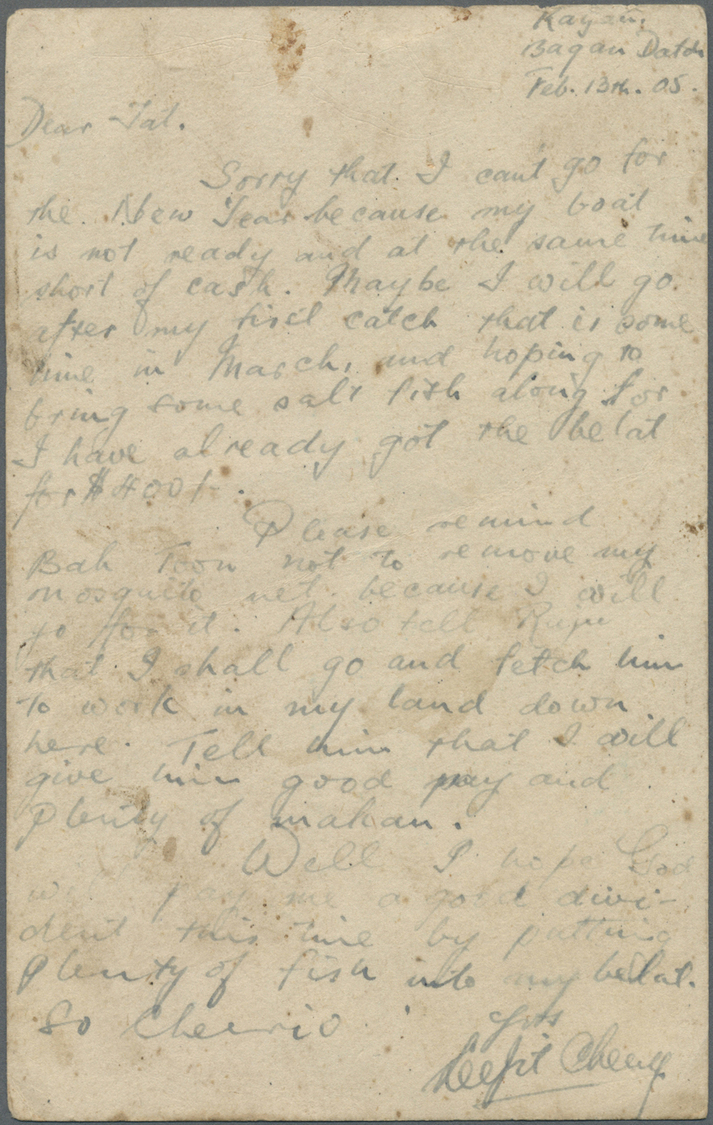 Kayan,
Bagan Datoh
Feb. 13th. 05.
Dear Tat.
Sorry that I can't go for
the New Year because my boat
is not ready and at the same time
short of cash. Maybe I will go
after my first catch that is some
time in March, and hoping to
bring some salt fish along for
I have already got the belat
for $400/-.
Please remind
Bah Toon not to remove my
mosquito net because I will
go for it. Also tell
that I shall go and fetch him
to work in my land down
here. Tell him that I will
give him good pay and
plenty of makan.
Well I hope God
will pay me a good divi-
dent this time by putting
plenty of fish into my belat.
So Cheerio.
Yrs
Cheng